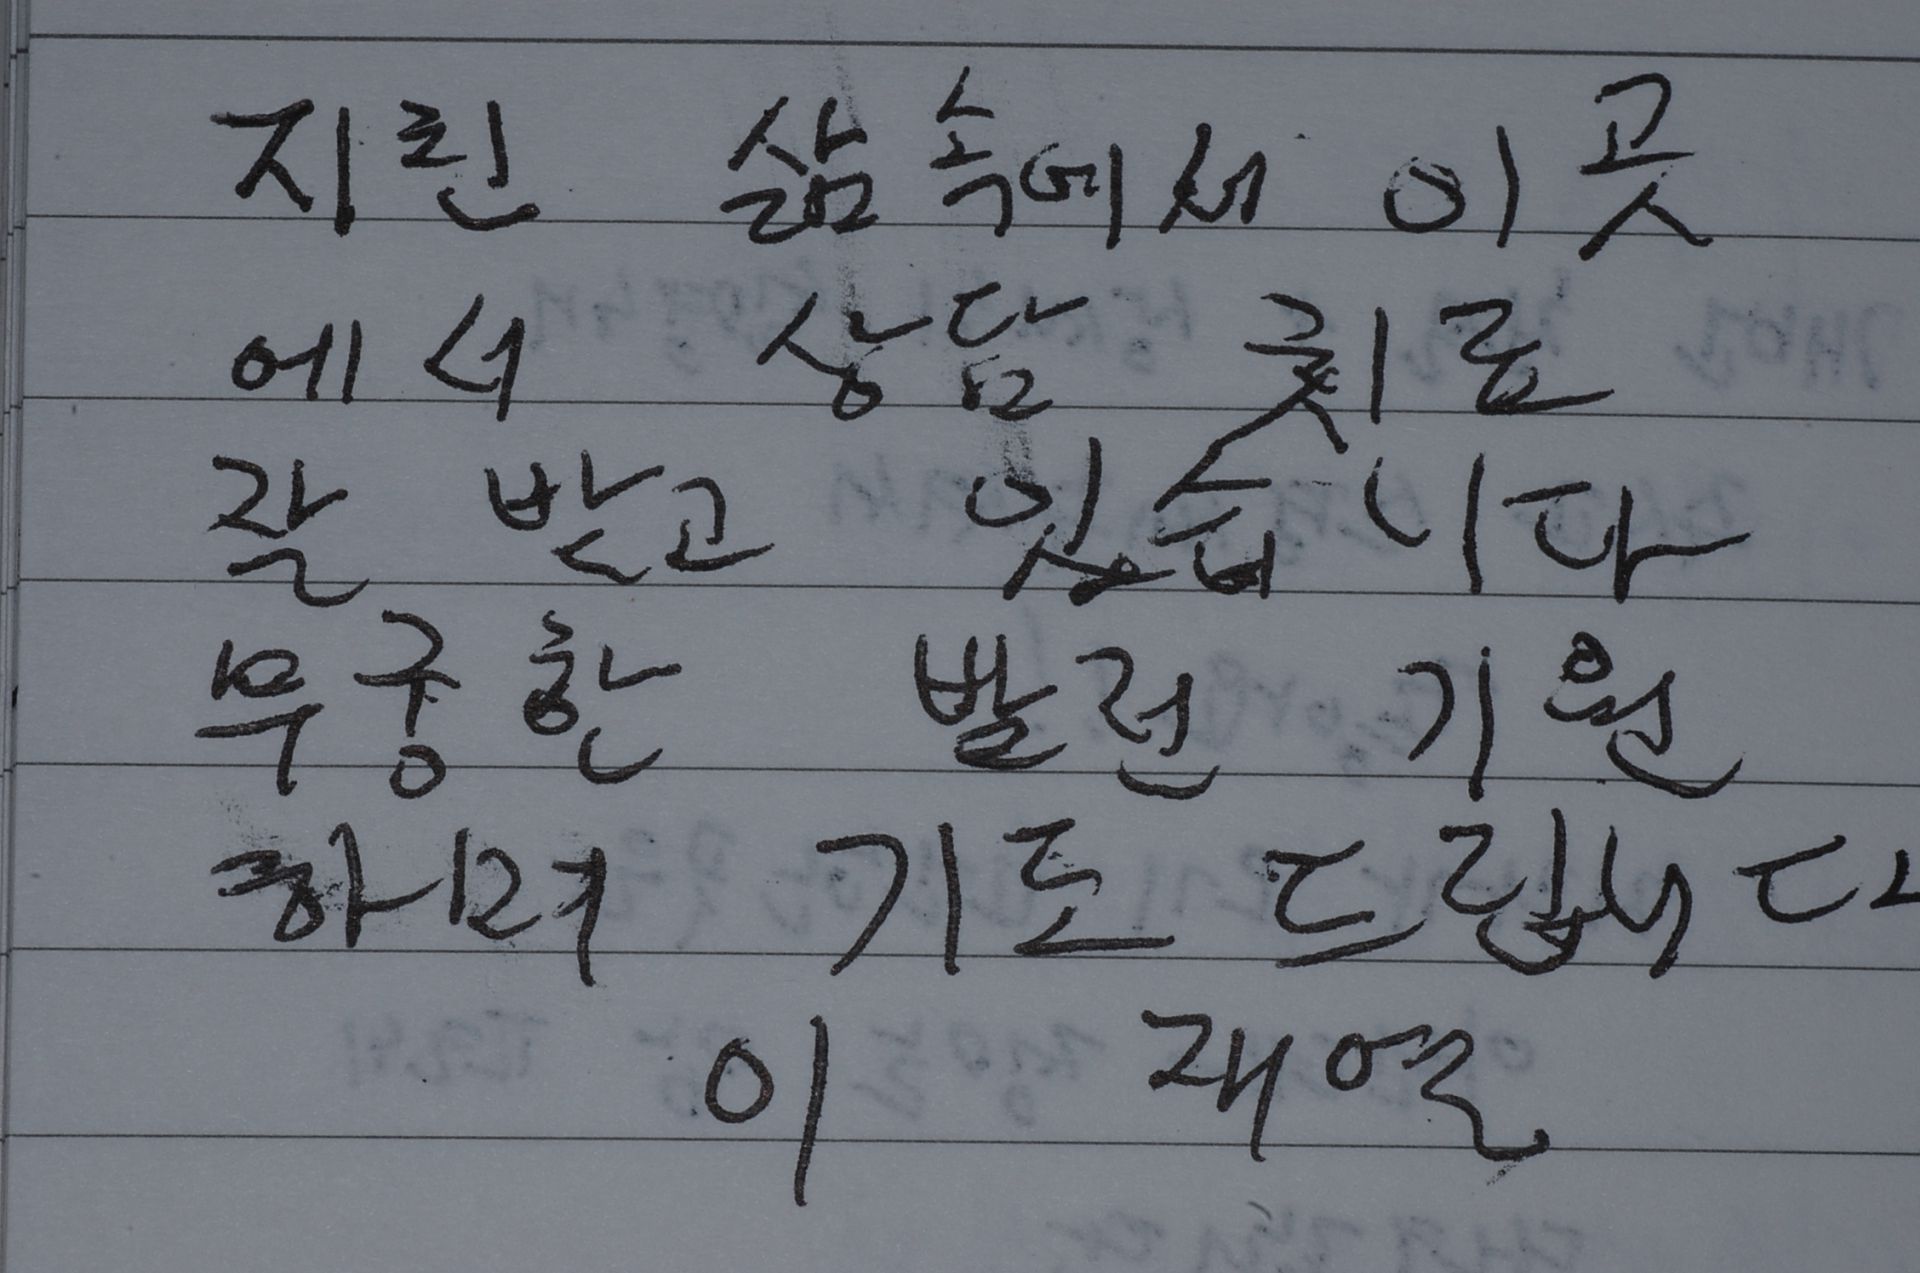 지친 삶 속에서 이곳
에서 상담 치료
잘 받고 있습니다
무궁한 발전 기원
하며 기도 드립니다
이 재열